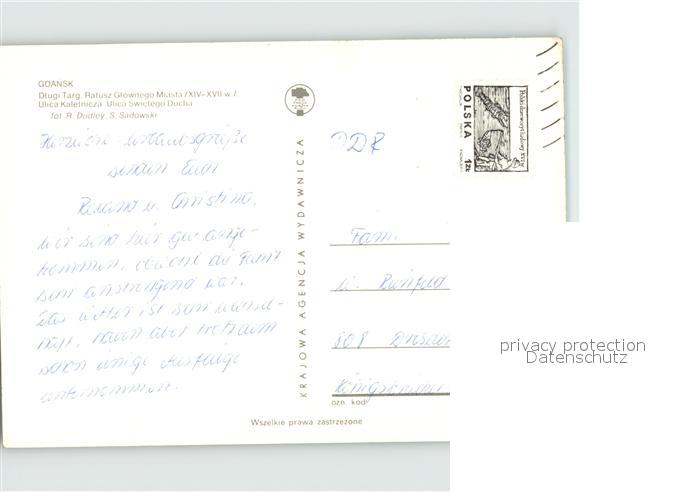 GDAŃSK
Długi Targ. Ratusz Głównego Miasta /XIV–XVII w./
Ulica Kaletnicza. Ulica Świętego Ducha
fot. R. Dudley, S. Sadowski
Herzliche Urlaubsgrüße
senden Euch
u. Christina.
wir sind hier gut ange-
kommen, obwohl die Fahrt
sehr anstrengend war.
Das Wetter ist sehr wechsel-
haft, haben aber trotzdem
schon einige Ausflüge
unternommen.
KRAJOWA AGENCJA WYDAWNICZA
DDR
Fam.
808 Dresden
ozn. kod
Wszelkie prawa zastrzeżone
POLSKA
1zł
Polski drzeworyt ludowy XVI w.
privacy protection
Datenschutz